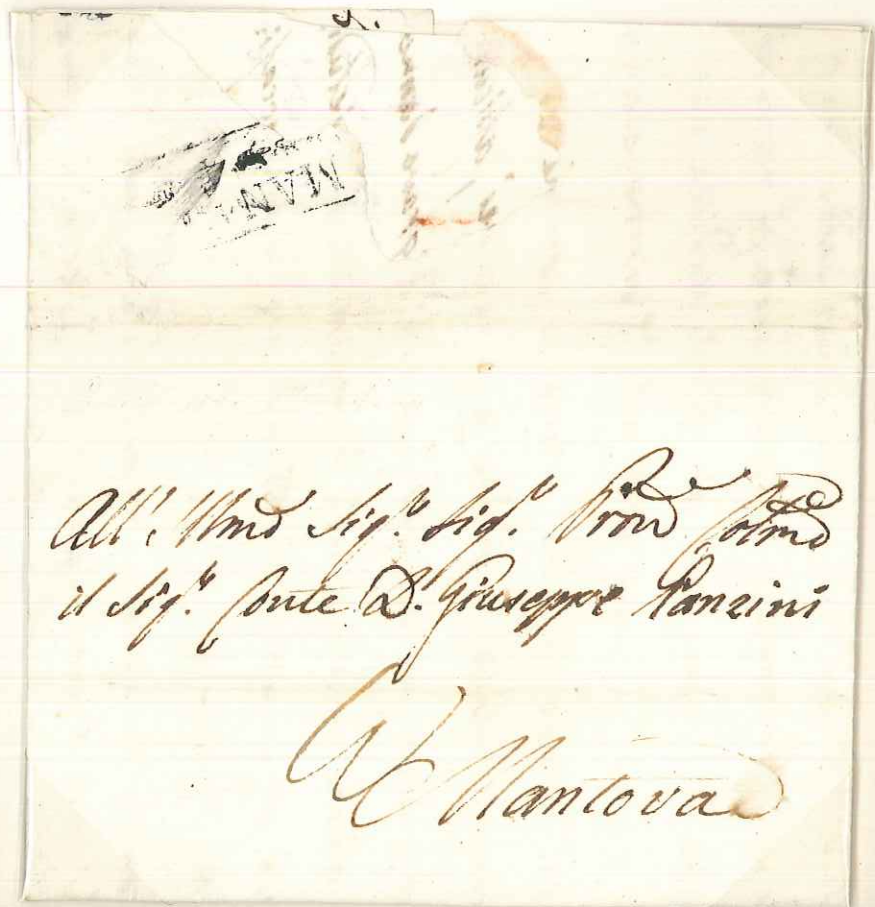 MAN
All' Illmo Sig.r Sig.r Prōn Colmo
il Sig.r Conte D. Giuseppe Panzini
Mantova